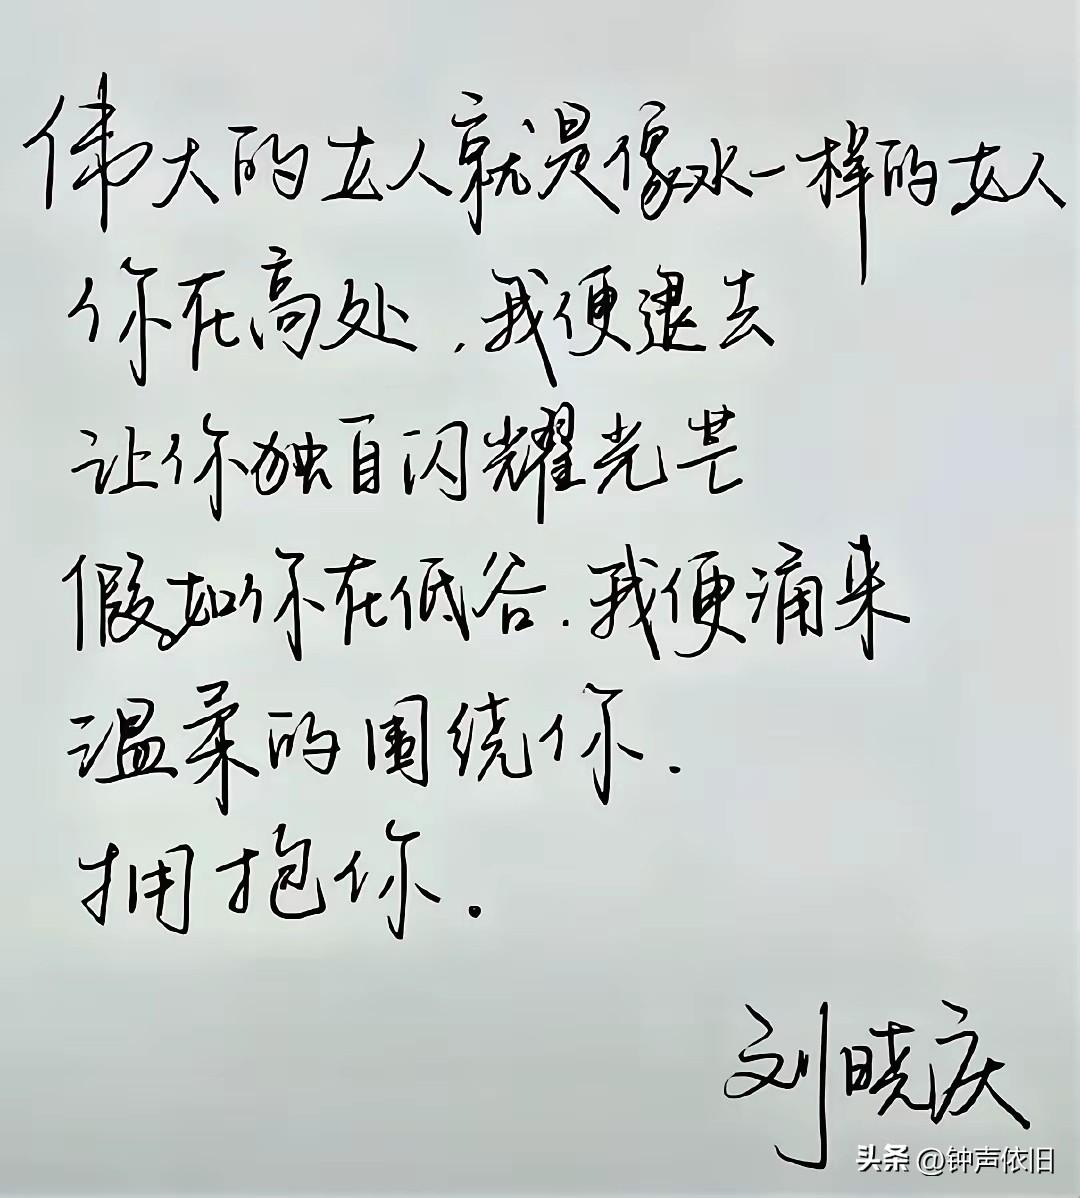 伟大的女人就是像水一样的女人
你在高处,我便退去
让你独自闪耀光芒
假如你在低谷.我便涌来
温柔的围绕你.
拥抱你.
刘晓庆
头条 @钟声依旧